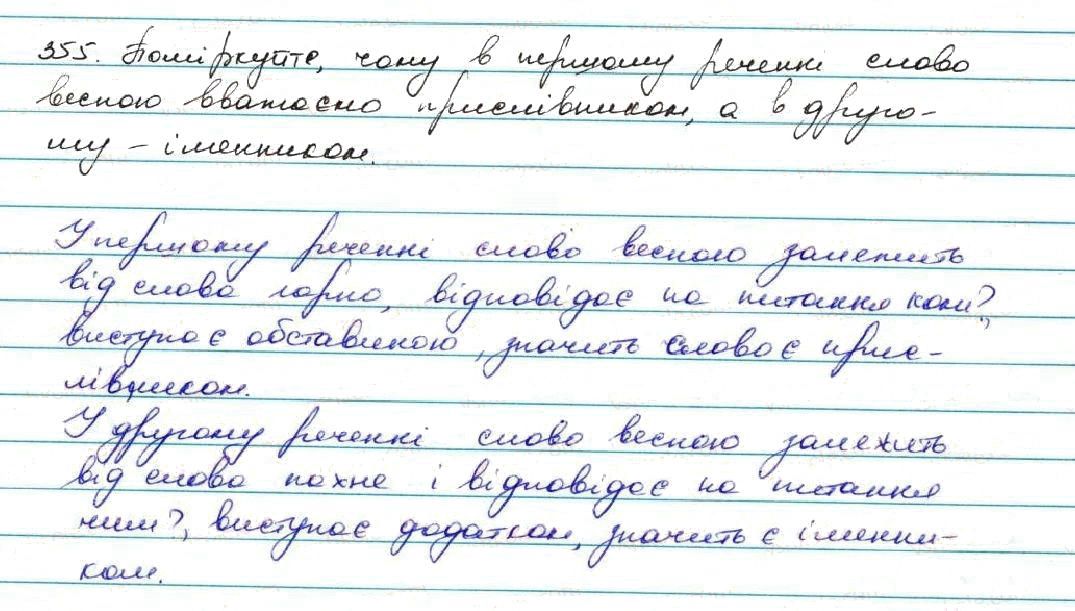 355. Поміркуйте, чому в першому реченні слово
весною вважаємо прислівником, а в друго-
му - іменником.
У першому реченні слово весною залежить
від слова гарно, відповідає на питання коли?,
виступає обставиною, значить слово є прис-
лівником.
У другому реченні слово весною залежить
від слова пахне і відповідає на питання
чим?, виступає додатком, значить є іменни-
ком.